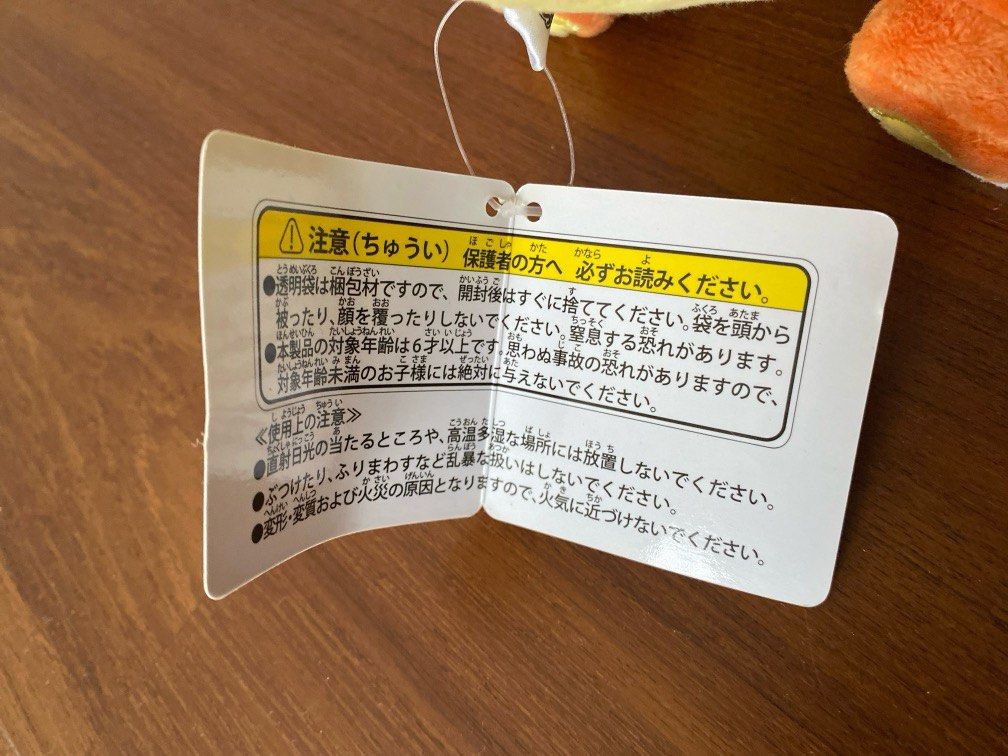 注意(ちゅうい) 保護者の方へ 必ずお読みください。
●透明袋は梱包材ですので、開封後はすぐに捨ててください。袋を頭から
被ったり、顔を覆ったりしないでください。窒息する恐れがあります。
●本製品の対象年齢は6才以上です。思わぬ事故の恐れがありますので、
対象年齢未満のお子様には絶対に与えないでください。
≪使用上の注意≫
●直射日光の当たるところや、高温多湿な場所には放置しないでください。
●ぶつけたり、ふりまわすなど乱暴な扱いはしないでください。
●変形・変質および火災の原因となりますので、火気に近づけないでください。